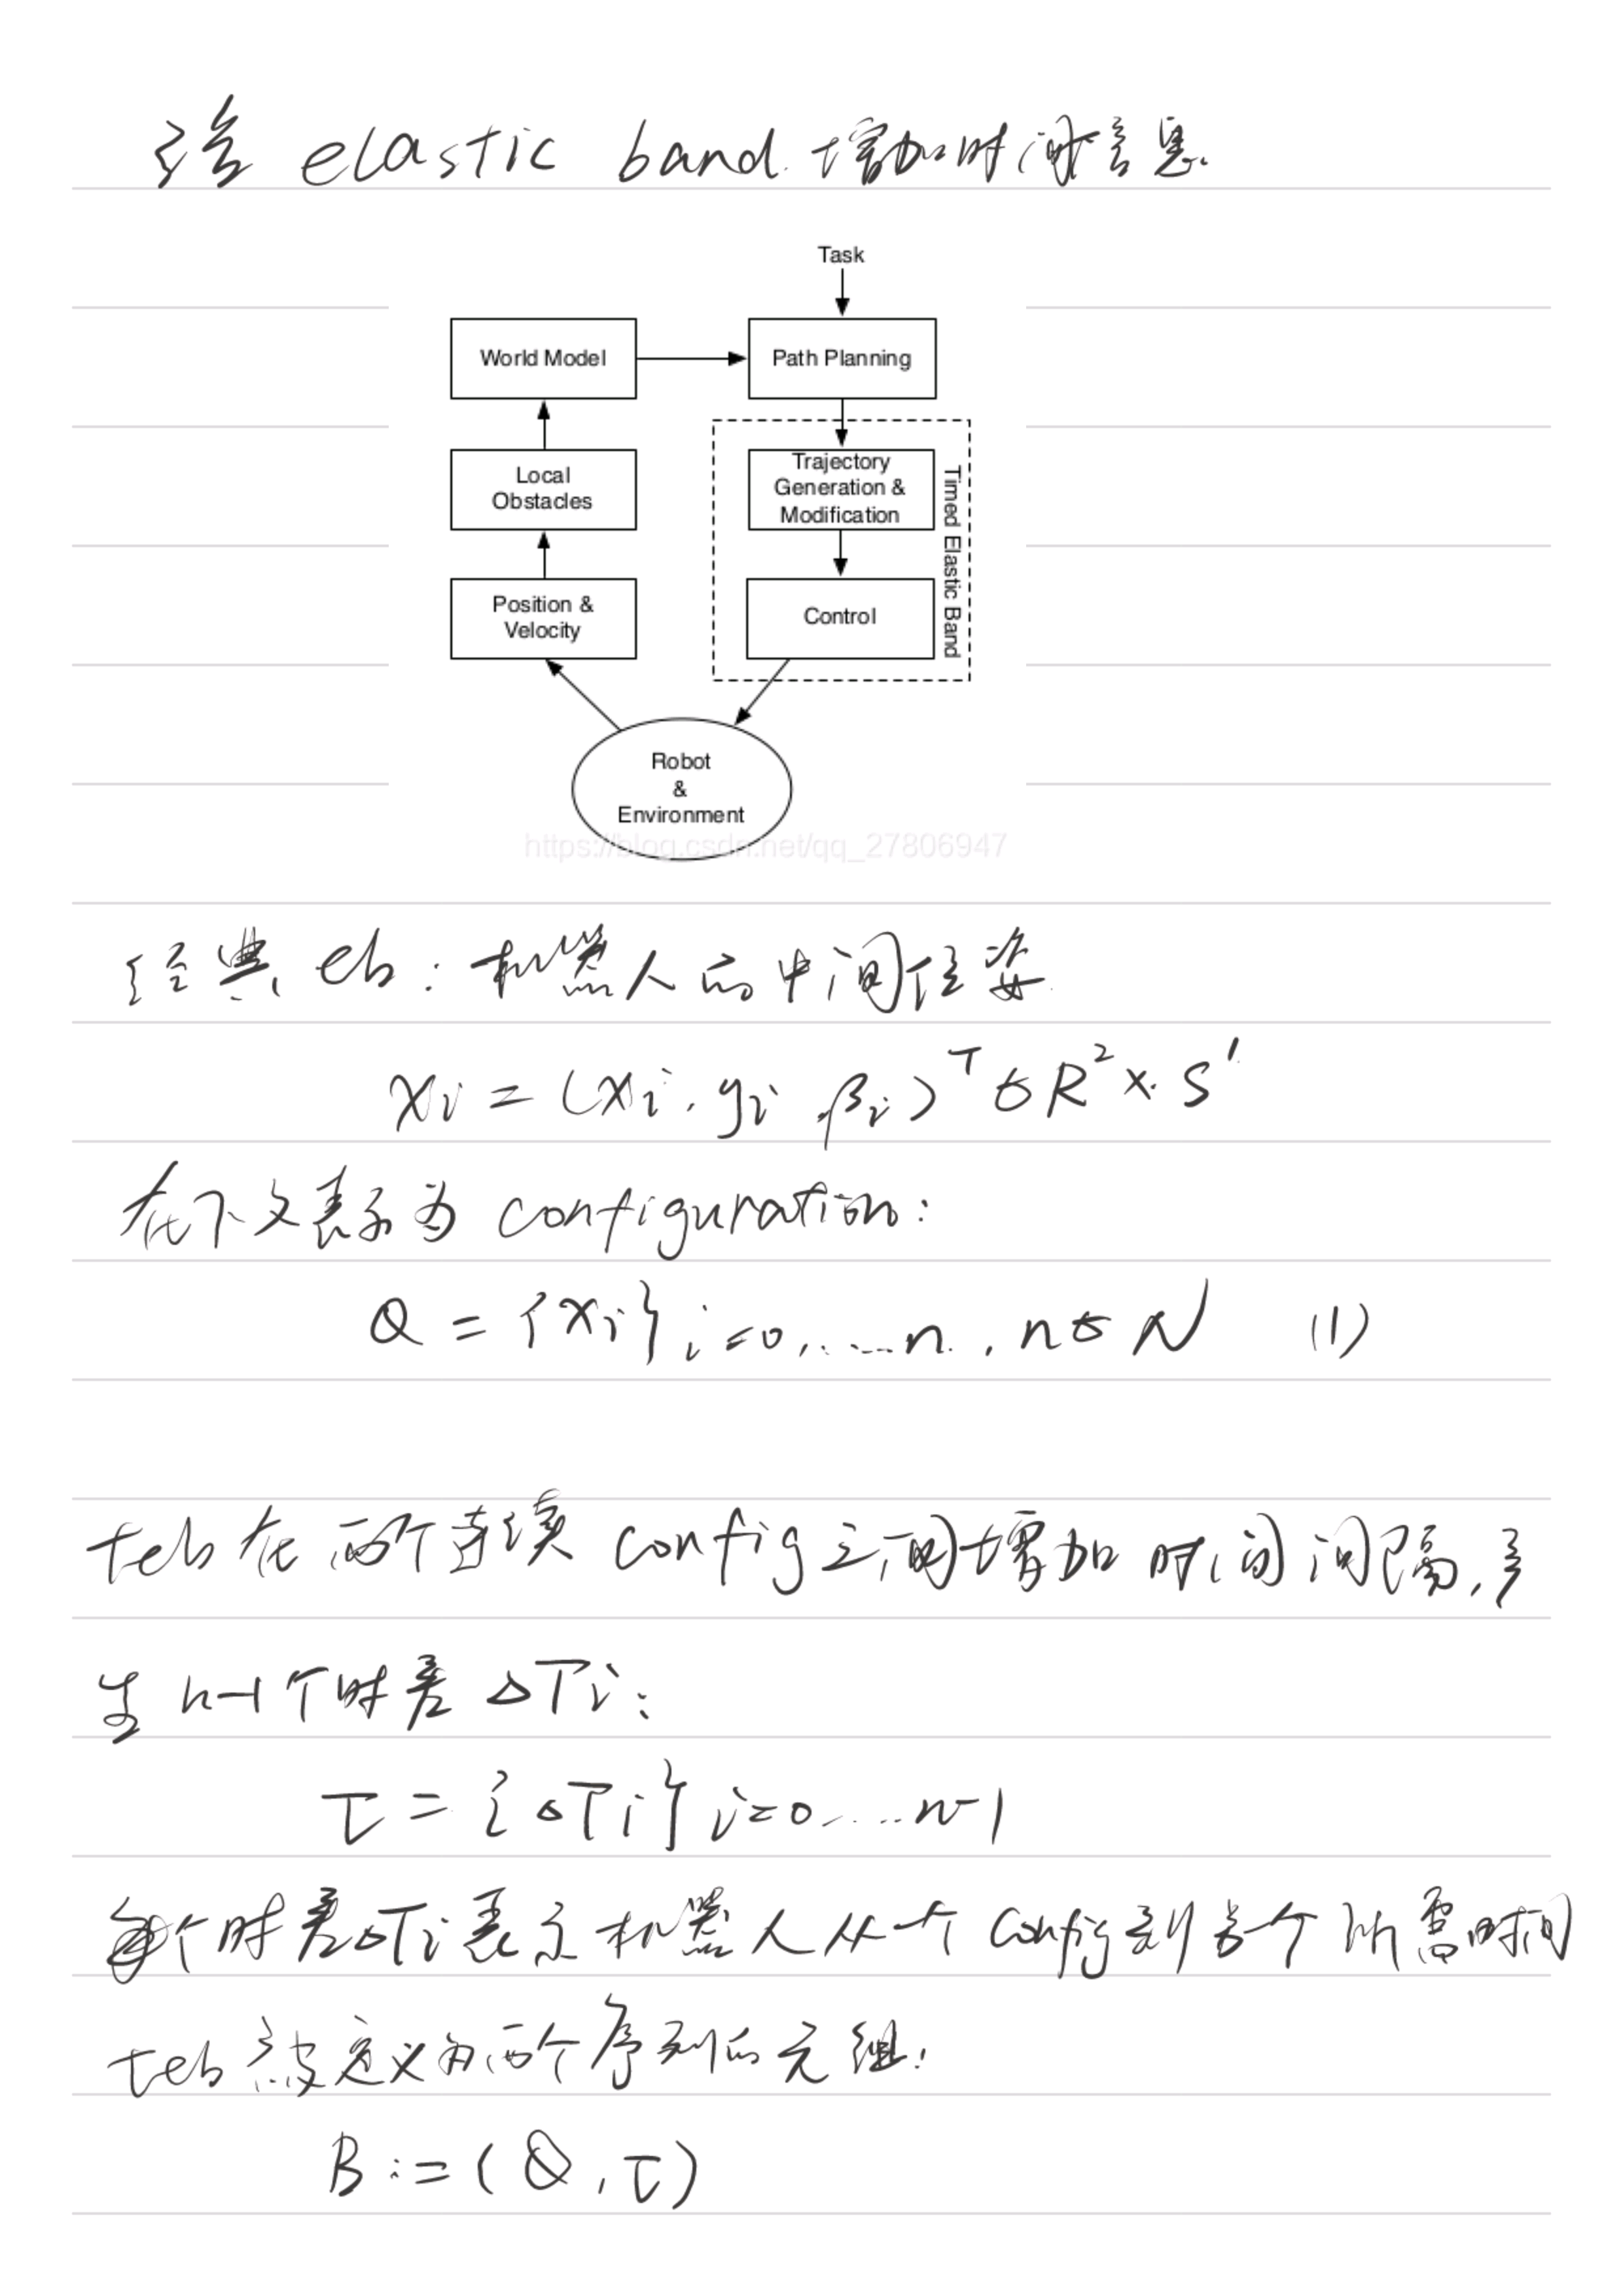 给 elastic band 增加时间信息.
Task
World Model
Path Planning
Local
Obstacles
Trajectory
Generation &
Modification
Timed Elastic Band
Position &
Velocity
Control
Robot
&
Environment
https://blog.csdn.net/qq_27806947
经典 eb: 机器人的中间位姿
Xi = (xi, yi, βi)ᵀ ∈ R² × S¹
在下文表示为 configuration:
Q = {Xi} i=0,.....n., n∈N (1)
teb 在两个连续 config 之间增加时间间隔, 产
生 n-1个时差 ΔTi:
τ = {ΔTi} i=0.....n-1
每个时差ΔTi表示机器人从一个 config到另一个所需时间
teb 被定义为两个序列的元组:
B := (Q, τ)